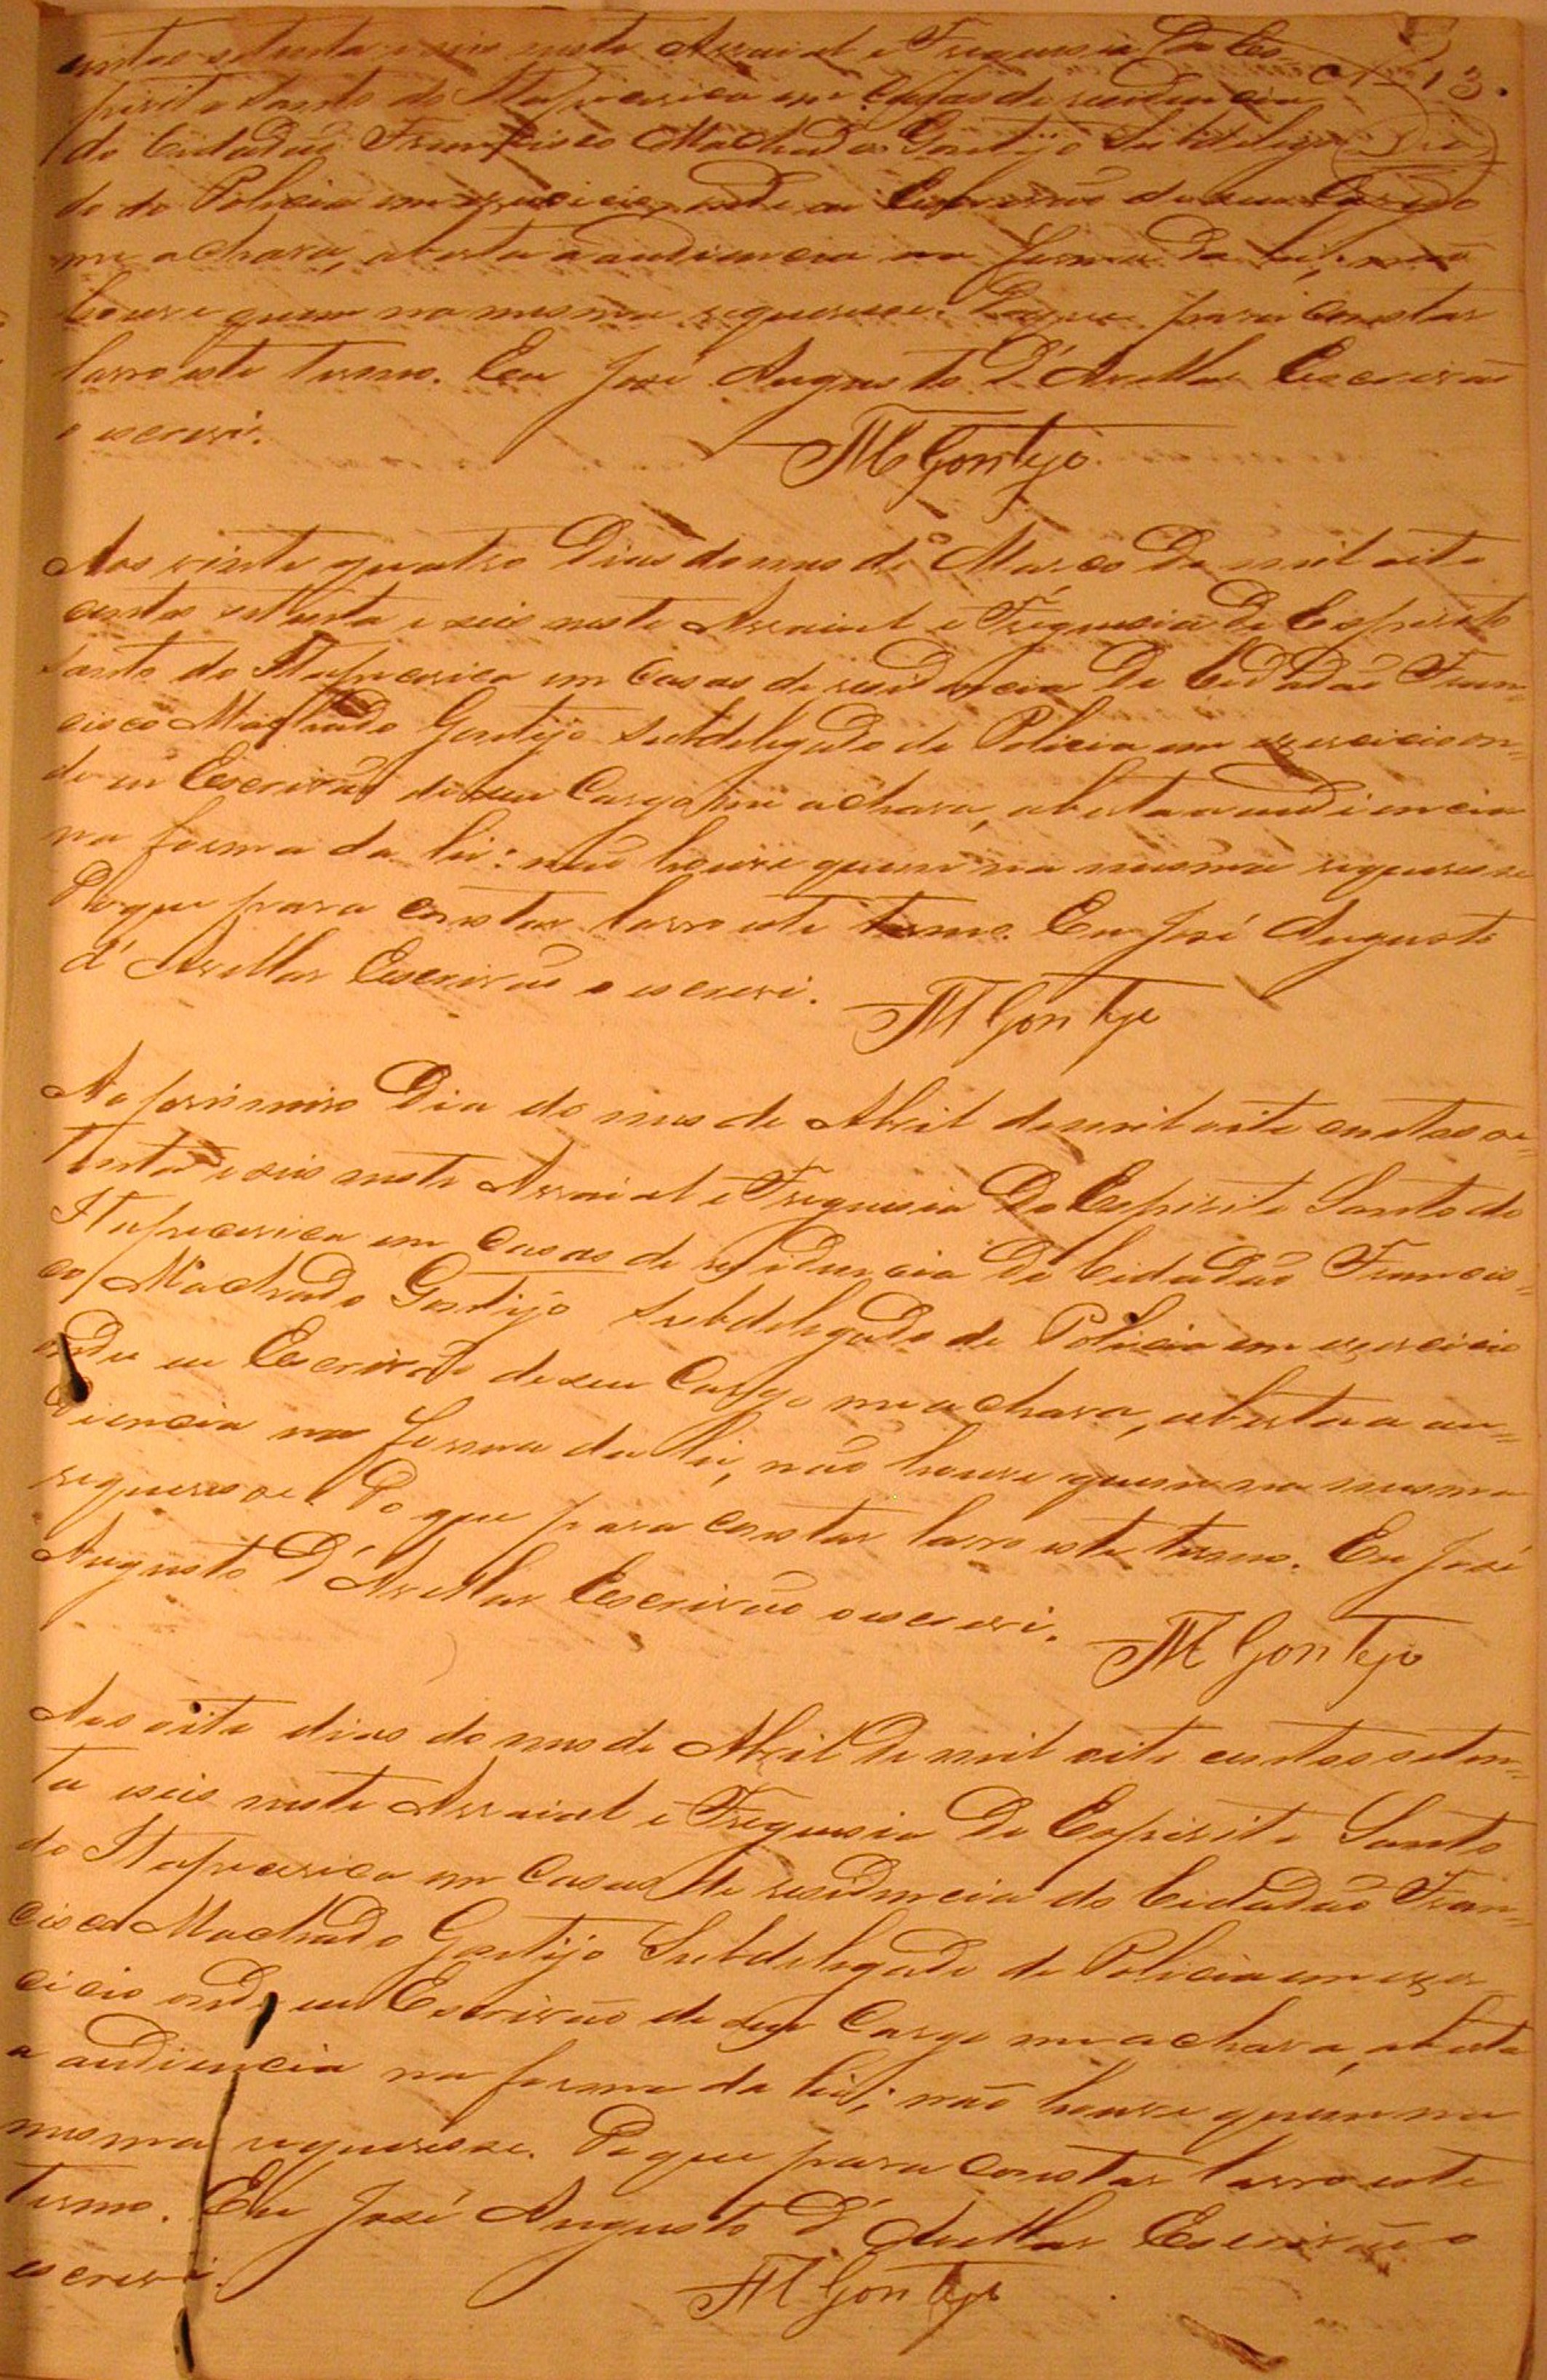 centos setenta e seis neste Arraial e Freguesia do Es-
13.
pirito Santo do Itapecerica em casas de residencia
do Cidadão Francisco Machado Gontijo Subdelega-
do de Policia em exercicio onde eu Escrivão de seu Cargo
me achava, aberta a audiencia na forma da lei, não
houve quem na mesma requeresse. Do que para constar
lavro este termo. Eu José Augusto d'Avellar Escrivão
o escrevi.
M Gontijo
Aos vinte quatro Dias do mes de Março de mil oito
centos setenta e seis neste Arraial e Freguesia do Espirito
Santo do Itapecerica em Casas de residencia do Cidadão Fran=
cisco Machado Gontijo Subdelegado de Policia em exercicio on=
de eu Escrivão de seu Cargo me achava, aberta a audiencia
na forma da lei: não houve quem na mesma requeresse
Do que para constar lavro este termo. Eu José Augusto
d'Avellar Escrivão o escrevi.
M Gontijo
Ao primeiro Dia do mes de Abril de mil oito centos se=
tenta e seis neste Arraial e Freguesia do Espirito Santo do
Itapecerica em Casas de residencia do Cidadão Francis=
co Machado Gontijo Subdelegado de Policia em exercicio
onde eu Escrivão de seu Cargo me achava, aberta a au=
diencia na forma da lei, não houve quem na mesma
requeresse. Do que para constar lavro este termo. Eu José
Augusto D'Avellar Escrivão o escrevi.
M Gontijo
Aos oito dias do mes de Abril de mil oito centos seten=
ta e seis neste Arraial e Freguesia do Espirito Santo
do Itapecerica em Casas de residencia do Cidadão Fran=
cisco Machado Gontijo Subdelegado de Policia em exer
cicio onde eu Escrivão de seu Cargo me achava, aberta
a audiencia na forma da lei; não houve quem na
mesma requeresse. Do que para constar lavro este
termo. Eu José Augusto d'Avellar Escrivão o
escrevi.
M Gontijo